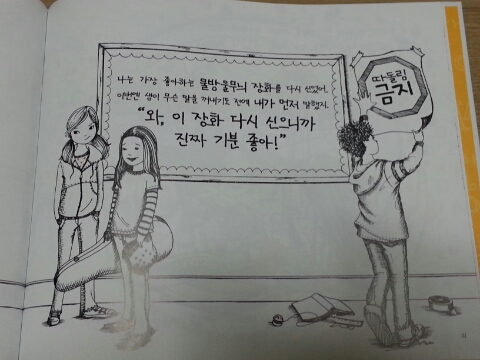 나는 가장 좋아하는 물방울무늬 장화를 다시 신었어.
이번엔 샘이 무슨 말을 꺼내기도 전에 내가 먼저 말했지.
“와, 이 장화 다시 신으니까
진짜 기분 좋아!”
따돌림
금지